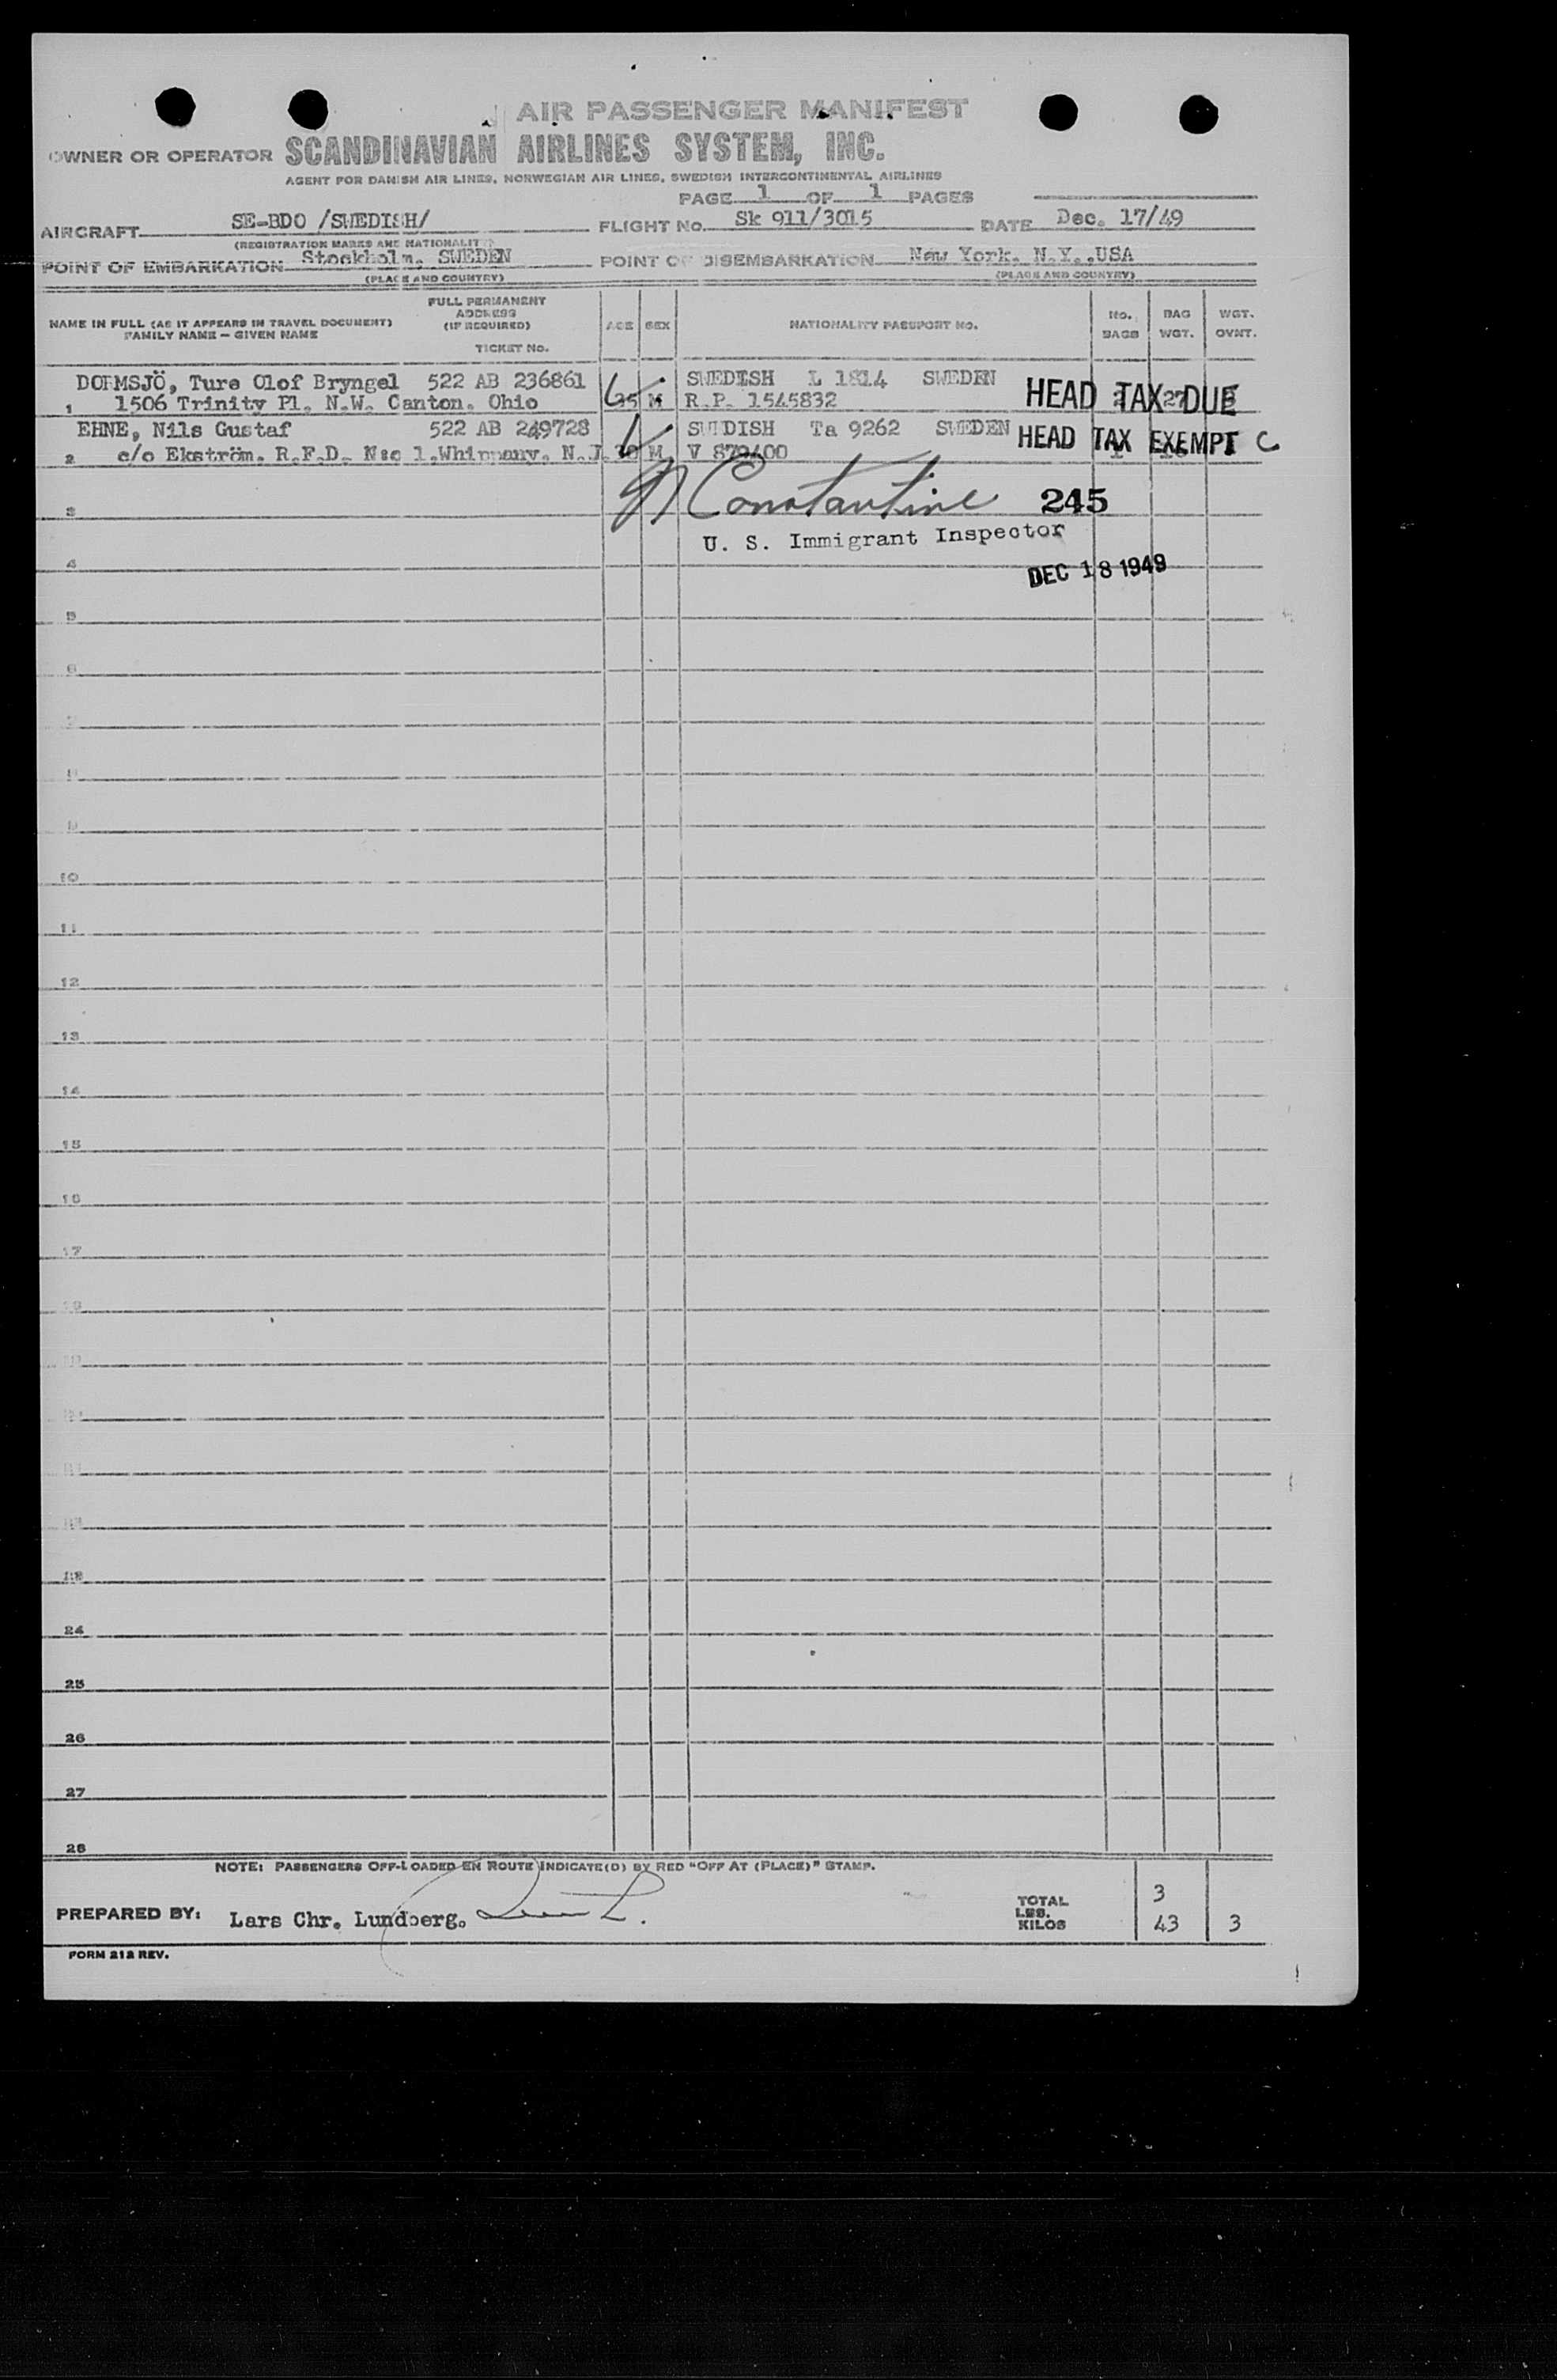 AIR PASSENGER MANIFEST
OWNER OR OPERATOR SCANDINAVIAN AIRLINES SYSTEM, INC.
AGENT FOR DANISH AIR LINES, NORWEGIAN AIR LINES, SWEDISH INTERCONTINENTAL AIRLINES
PAGE 1 OF 1 PAGES
AIRCRAFT SE-BDO /SWEDISH/ FLIGHT No. Sk 911/3015 DATE Dec. 17/49
(REGISTRATION MARKS AND NATIONALITY)
POINT OF EMBARKATION Stockholm, SWEDEN POINT OF DISEMBARKATION New York, N.Y.,USA
(PLACE AND COUNTRY) (PLACE AND COUNTRY)
NAME IN FULL (AS IT APPEARS IN TRAVEL DOCUMENT) FAMILY NAME — GIVEN NAME
FULL PERMANENT ADDRESS (IF REQUIRED) TICKET No.
AGE SEX NATIONALITY PASSPORT NO. No. BAGS BAG WGT. WGT. OVWT.
DORMSJÖ, Ture Olof Bryngel 522 AB 236861 SWEDISH L 1814 SWEDEN HEAD TAX DUE
1 1506 Trinity Pl. N.W. Canton. Ohio 35 M R.P. 1545832
EHNE, Nils Gustaf 522 AB 249728 SWEDISH Ta 9262 SWEDEN HEAD TAX EXEMPT C
2 c/o Ekström. R.F.D. N:o 1.Whippany. N.J. M V 879400
Constantine 245
3
U. S. Immigrant Inspector
4
DEC 18 1949
5
6
7
8
9
10
11
12
13
14
15
16
17
18
19
20
21
22
23
24
25
26
27
28
NOTE: PASSENGERS OFF-LOADED EN ROUTE INDICATE(D) BY RED "OFF AT (PLACE)" STAMP.
PREPARED BY: Lars Chr. Lundberg.
TOTAL 3
LBS.
KILOS 43 3
FORM 212 REV.